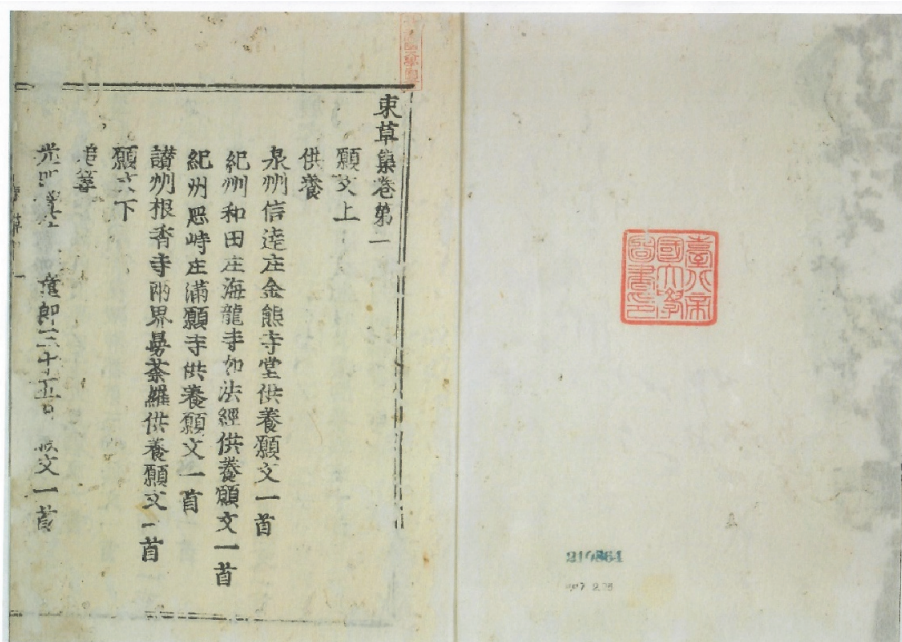 束草集巻第一
願文上
供養
泉州信達庄金熊寺堂供養願文一首
紀州和田庄海龍寺如法經供養願文一首
紀州忍峙庄滿願寺供養願文一首
讃州根香寺兩界曼荼羅供養願文一首
願文下
追善
文一首
臺北帝
國大學
圖書印
210864